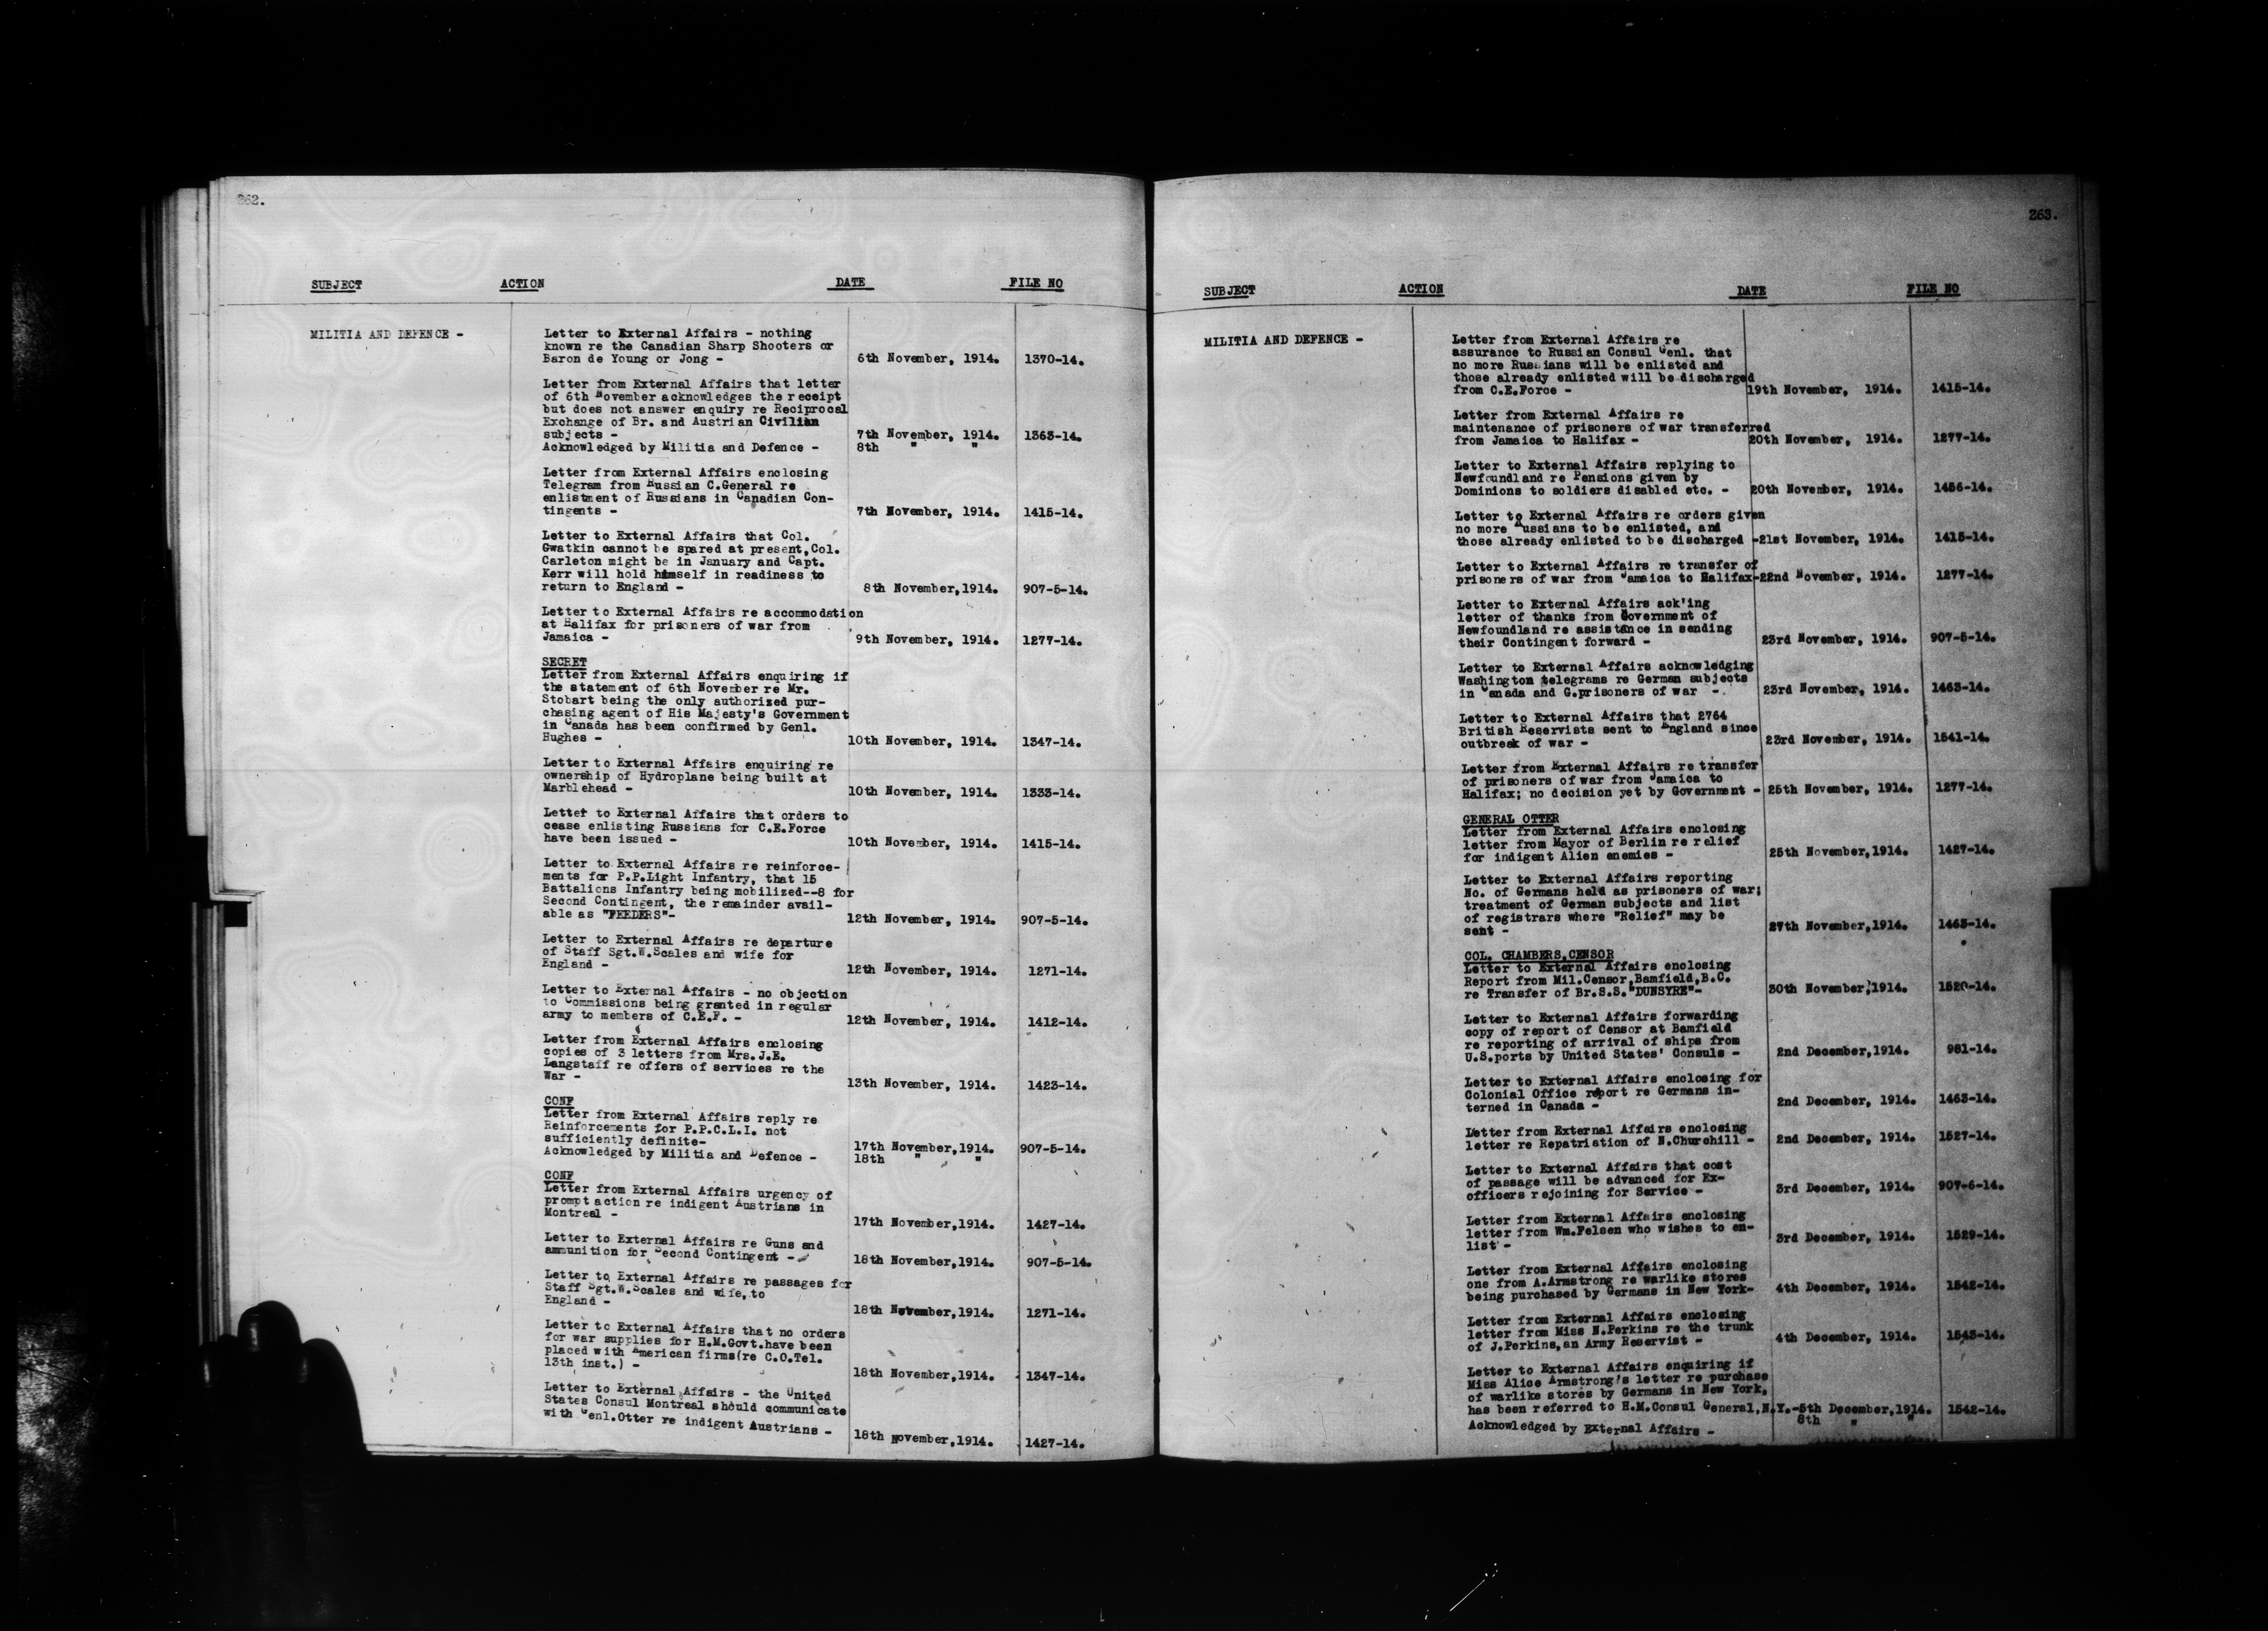 262.
SUBJECT ACTION DATE FILE NO
MILITIA AND DEFENCE -
Letter to External Affairs - nothing
known re the Canadian Sharp Shooters or
Baron de Young or Jong - 6th November, 1914. 1370-14.
Letter from External Affairs that letter
of 6th November acknowledges the receipt
but does not answer enquiry re Reciprocal
Exchange of Br. and Austrian Civilian
subjects - 7th November, 1914. 1363-14.
Acknowledged by Militia and Defence - 8th " "
Letter from External Affairs enclosing
Telegram from Russian C.General re
enlistment of Russians in Canadian Con-
tingents - 7th November, 1914. 1415-14.
Letter to External Affairs that Col.
Gwatkin cannot be spared at present,Col.
Carleton might be in January and Capt.
Kerr will hold himself in readiness to
return to England - 8th November,1914. 907-5-14.
Letter to External Affairs re accommodation
at Halifax for prisoners of war from
Jamaica - 9th November, 1914. 1277-14.
SECRET
Letter from External Affairs enquiring if
the statement of 6th November re Mr.
Stobart being the only authorized pur-
chasing agent of His Majesty's Government
in Canada has been confirmed by Genl.
Hughes - 10th November, 1914. 1347-14.
Letter to External Affairs enquiring re
ownership of Hydroplane being built at
Marblehead - 10th November, 1914. 1333-14.
Letter to External Affairs that orders to
cease enlisting Russians for C.E.Force
have been issued - 10th November, 1914. 1415-14.
Letter to External Affairs re reinforce-
ments for P.P.Light Infantry, that 15
Battalions Infantry being mobilized--8 for
Second Contingent, the remainder avail-
able as "FEEDERS"- 12th November, 1914. 907-5-14.
Letter to External Affairs re departure
of Staff Sgt.W.Scales and wife for
England - 12th November, 1914. 1271-14.
Letter to External Affairs - no objection
to Commissions being granted in regular
army to members of C.E.F. - 12th November, 1914. 1412-14.
Letter from External Affairs enclosing
copies of 3 letters from Mrs.J.E.
Langstaff re offers of services re the
War - 13th November, 1914. 1423-14.
CONF
Letter from External Affairs reply re
Reinforcements for P.P.C.L.I. not
sufficiently definite- 17th November,1914. 907-5-14.
Acknowledged by Militia and Defence - 18th " "
CONF
Letter from External Affairs urgency of
prompt action re indigent Austrians in
Montreal - 17th November,1914. 1427-14.
Letter to External Affairs re Guns and
ammunition for Second Contingent - 18th November,1914. 907-5-14.
Letter to External Affairs re passages for
Staff Sgt.W.Scales and wife,to
England - 18th November,1914. 1271-14.
Letter to External Affairs that no orders
for war supplies for H.M.Govt.have been
placed with American firms(re C.O.Tel.
13th inst.) - 18th November,1914. 1347-14.
Letter to External Affairs - the United
States Consul Montreal should communicate
with Genl.Otter re indigent Austrians - 18th November,1914. 1427-14.
263.
SUBJECT ACTION DATE FILE NO
MILITIA AND DEFENCE -
Letter from External Affairs re
assurance to Russian Consul Genl. that
no more Russians will be enlisted and
those already enlisted will be discharged
from C.E.Force - 19th November, 1914. 1415-14.
Letter from External Affairs re
maintenance of prisoners of war transferred
from Jamaica to Halifax - 20th November, 1914. 1277-14.
Letter to External Affairs replying to
Newfoundland re Pensions given by
Dominions to soldiers disabled etc. - 20th November, 1914. 1456-14.
Letter to External Affairs re orders given
no more Russians to be enlisted, and
those already enlisted to be discharged -21st November, 1914. 1415-14.
Letter to External Affairs re transfer of
prisoners of war from Jamaica to Halifax-22nd November, 1914. 1277-14.
Letter to External Affairs ack'ing
letter of thanks from Government of
Newfoundland re assistance in sending
their Contingent forward - 23rd November, 1914. 907-5-14.
Letter to External Affairs acknowledging
Washington telegrams re German subjects
in Canada and G.prisoners of war -. 23rd November, 1914. 1463-14.
Letter to External Affairs that 2764
British Reservists sent to England since
outbreak of war - 23rd November, 1914. 1541-14.
Letter from External Affairs re transfer
of prisoners of war from Jamaica to
Halifax; no decision yet by Government - 25th November, 1914. 1277-14.
GENERAL OTTER
Letter from External Affairs enclosing
letter from Mayor of Berlin re relief
for indigent Alien enemies - 25th November,1914. 1427-14.
Letter to External Affairs reporting
No. of Germans held as prisoners of war;
treatment of German subjects and list
of registrars where "Relief" may be
sent - 27th November,1914. 1463-14.
COL. CHAMBERS,CENSOR
Letter to External Affairs enclosing
Report from Mil.Censor,Bamfield,B.C.
re Transfer of Br.S.S."DUNSYRE"- 30th November,1914. 1520-14.
Letter to External Affairs forwarding
copy of report of Censor at Bamfield
re reporting of arrival of ships from
U.S.ports by United States' Consuls - 2nd December,1914. 981-14.
Letter to External Affairs enclosing for
Colonial Office report re Germans in-
terned in Canada - 2nd December, 1914. 1463-14.
Letter from External Affairs enclosing
letter re Repatriation of N.Churchill - 2nd December, 1914. 1527-14.
Letter to External Affairs that cost
of passage will be advanced for Ex-
officers rejoining for Service - 3rd December, 1914. 907-6-14.
Letter from External Affairs enclosing
letter from Wm.Felsen who wishes to en-
list - 3rd December, 1914. 1529-14.
Letter from External Affairs enclosing
one from A.Armstrong re warlike stores
being purchased by Germans in New York- 4th December, 1914. 1542-14.
Letter from External Affairs enclosing
letter from Miss N.Perkins re the trunk
of J.Perkins,an Army Reservist - 4th December, 1914. 1543-14.
Letter to External Affairs enquiring if
Miss Alice Armstrong's letter re purchase
of warlike stores by Germans in New York,
has been referred to H.M.Consul General,N.Y.-5th December,1914. 1542-14.
Acknowledged by External Affairs - 8th " "